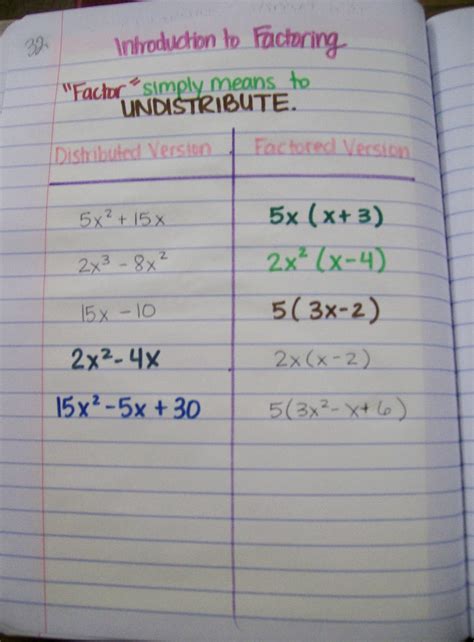 32.
Introduction to Factoring
"Factor" simply means to
UNDISTRIBUTE.
Distributed Version Factored Version
5x² + 15x 5x (x+3)
2x³ - 8x² 2x² (x-4)
15x - 10 5( 3x-2)
2x² - 4x 2x(x-2)
15x² - 5x + 30 5(3x² - x + 6)